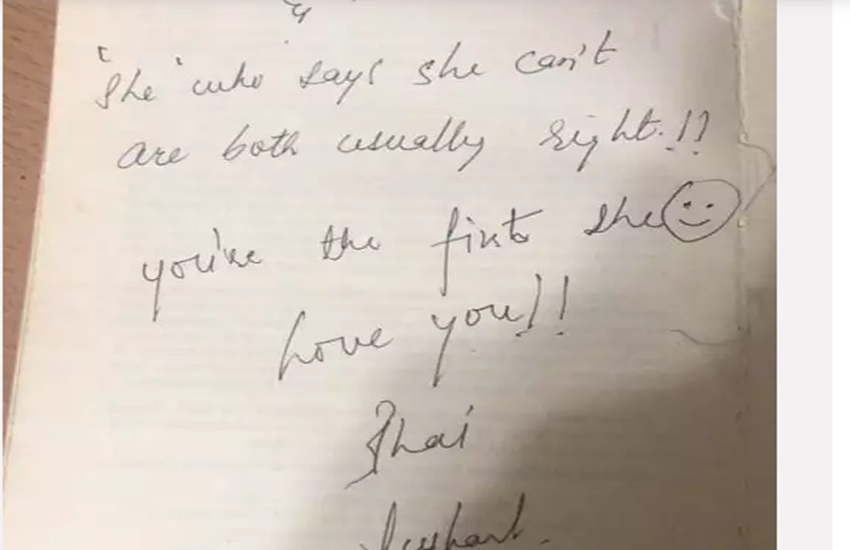 &
'She' who says she can't
are both usually right.!!
you're the first she
Love you!!
Bhai